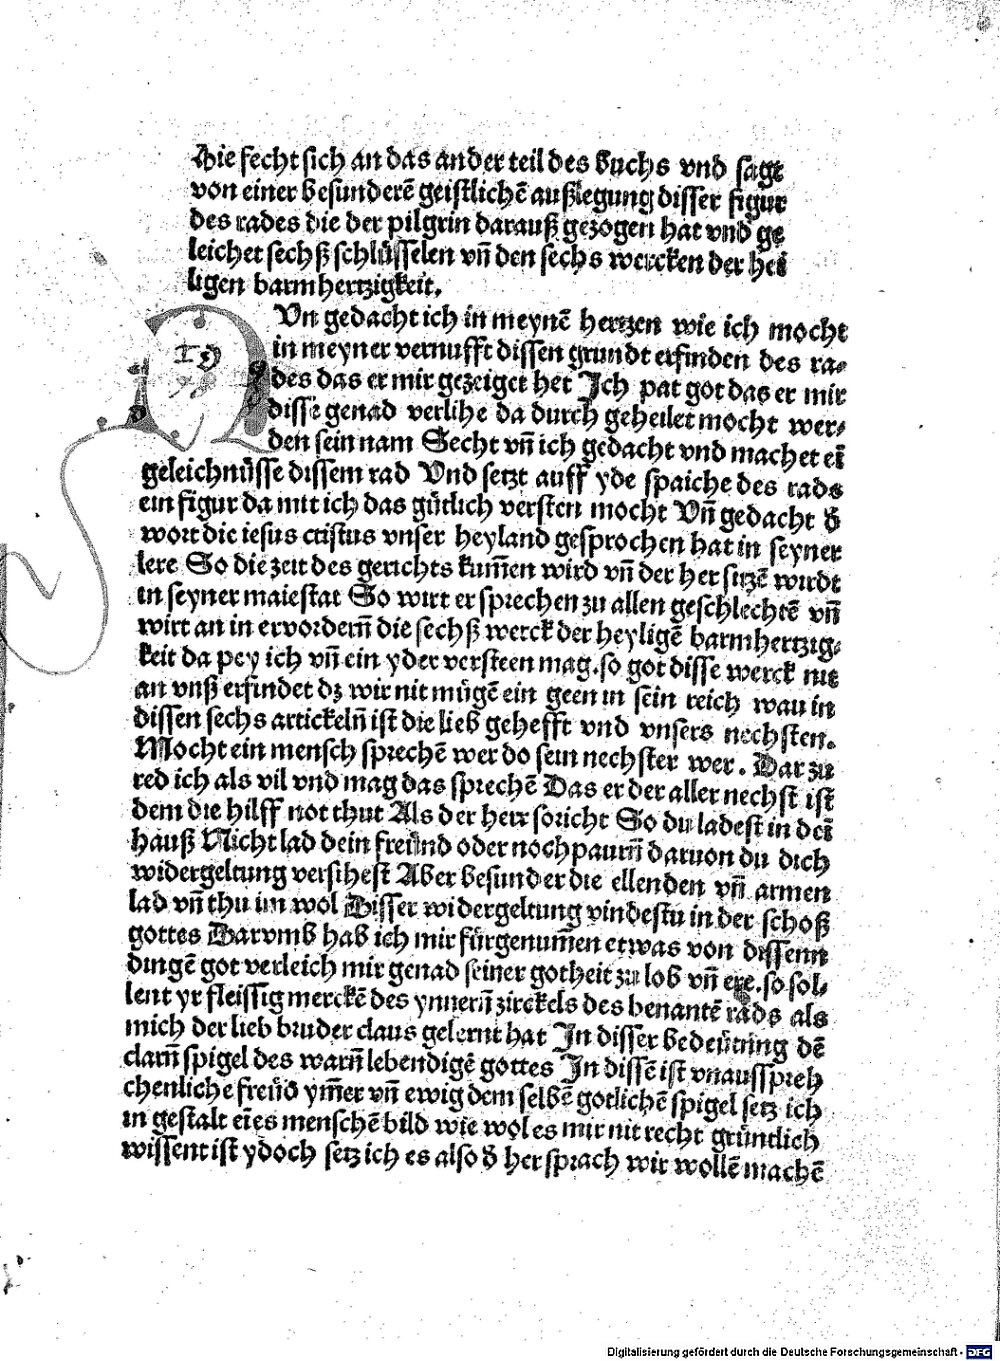 Hie fecht sich an das ander teil des buchs vnd sagt
von einer besunderē geistlichē außlegung disser figur
des rades die der pilgrin darauß gezogen hat vnd ge
leichet sechß schlüsselen vn̄ den sechs wercken der hei
ligen barmhertzigkeit.
Vn gedacht ich in meynē hertzen wie ich mocht
in meyner vernufft dissen grundt erfinden des ra⸗
des das er mir gezeiget het Ich pat got das er mir
disse genad verlihe da durch geheilet mocht wer⸗
den sein nam Secht vn̄ ich gedacht vnd machet eī
geleichnüsse dissem rad Vnd setzt auff yde spaiche des rads
ein figur da mit ich das gütlich versten mocht Vn̄ gedacht d̕
wort die iesus cristus vnser heyland gesprochen hat in seyner
lere So die zeit des gerichts kum̄en wird vn̄ der her sitzē wirdt
in seyner maiestat So wirt er sprechen zu allen geschlechtē vn̄
wirt an in ervordern̄ die sechß werck der heyligē barmhertzig⸗
keit da pey ich vn̄ ein yder versteen mag. so got disse werck nit
an vnß erfindet dz wir nit mügē ein geen in sein reich wau in
dissen sechs artickeln̄ ist die lieb gehefft vnd vnsers nechsten.
Mocht ein mensch sprechē wer do sein nechster wer. Dar zu
red ich als vil vnd mag das sprechē Das er der aller nechst ist
dem die hilff not thut Als der herr spricht So du ladest in deī
hauß Nicht lad dein freünd oder noch paurn̄ daruon du dich
widergeltung versihest Aber besunder die ellenden vn̄ armen
lad vn̄ thu im wol Disser widergeltung vindestu in der schoß
gottes Darvmb hab ich mir fürgenum̄en etwas von dissenn
dingē got verleich mir genad seiner gotheit zu lob vn̄ ere. so sol⸗
lent yr fleissig merckē des ynnern̄ zirckels des benantē rads als
mich der lieb bruder claus gelernt hat In disser bedeütung dē
clarn̄ spigel des warn̄ lebendigē gottes In dissē ist vnausspreh
chenliche freüd ym̄er vn̄ ewig dem selbē gotlichē spigel setz ich
in gestalt eīes menschē bild wie wol es mir nit recht gründlich
wissent ist ydoch setz ich es also d̕ her sprach wir wollē machē
Digitalisierung gefördert durch die Deutsche Forschungsgemeinschaft - DFG